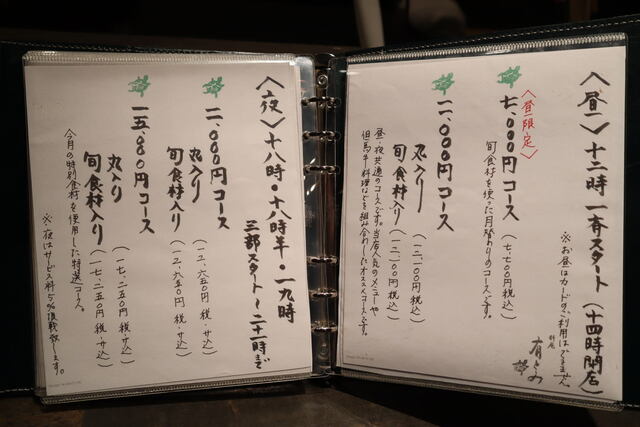 〈昼〉十二時一斉スタート(十四時閉店)
※お昼はカードのご利用はできません
〈昼限定〉
七、〇〇〇円コース(七、七〇〇円税込)
旬食材を使った月替わりのコースです。
一一、〇〇〇円コース
丸入り(一二、一〇〇円税込)
旬食材入り(一二、一〇〇円税込)
昼・夜共通のコースです。当店人気のメニューや
但馬牛料理などを組み合わせたオススメコースです。
〈夜〉十八時・十八時半・一九時
三部スタート〜二十一時まで
一一、〇〇〇円コース
丸入り(一二、六五〇円 税・サ込)
旬食材入り(一二、六五〇円 税・サ込)
一五、〇〇〇円コース
丸入り(一七、二五〇円 税・サ込)
旬食材入り(一七、二五〇円 税・サ込)
今月の特別食材を使用した特選コース。
※夜はサービス料5%頂戴致します。